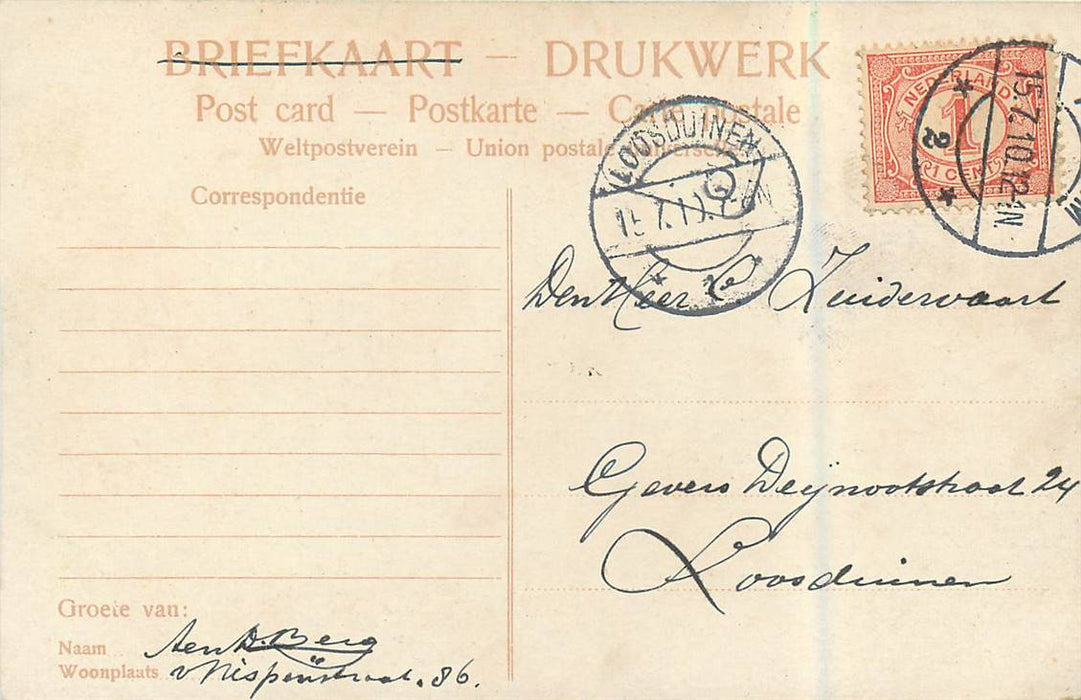 BRIEFKAART – DRUKWERK
Post card — Postkarte — Carte postale
Weltpostverein – Union postale universelle
NEDERLAND
1
1 CENT
15.7.10.12-1N.
2
LOOSDUINEN
15.7.10
Correspondentie
Den Heer C. Zuidervaart
Gevers Deijnootstraat 24
Loosduinen
Groete van:
Naam A en D. Berg
Woonplaats v Nispenstraat. 86.